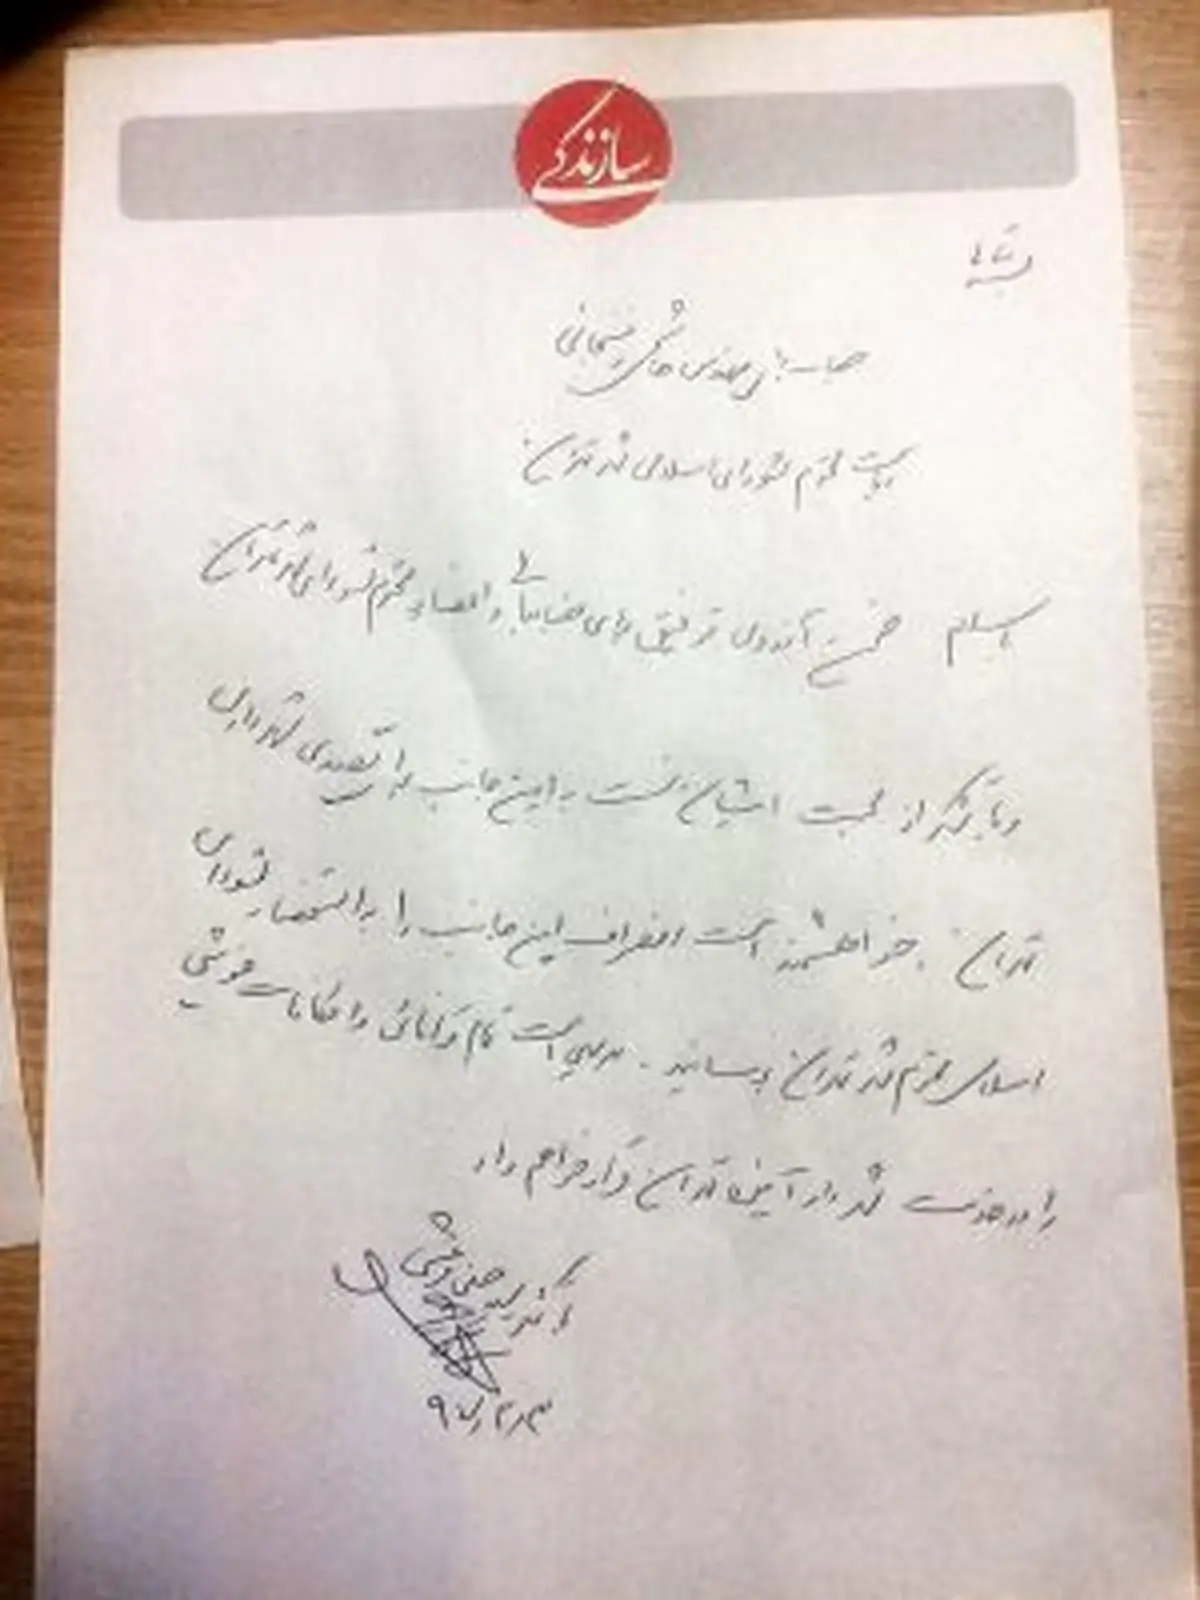 سازندگی
بسمه تعالی
جناب آقای مهندس هاشمی رفسنجانی
ریاست محترم شورای اسلامی شهر تهران
باسلام ضمن آرزوی توفیق برای جنابعالی و اعضاء محترم شورای شهر تهران
و با تشکر از محبت ایشان نسبت به این جانب برای تصدی شهرداری
تهران، خواهشمند است انصراف این جانب را به استحضار شورای
اسلامی محترم شهر تهران برسانید. بدیهی است تمام توانائی و امکانات خویش
را در خدمت شهردار آینده تهران قرار خواهم داد
دکتر سید حسینی
۹۷/۲/۳